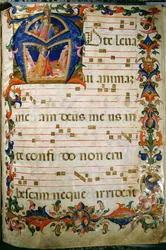 AD te leua
ui animam
me am deus me us in
te confi do non eru
bescam neque irrideant